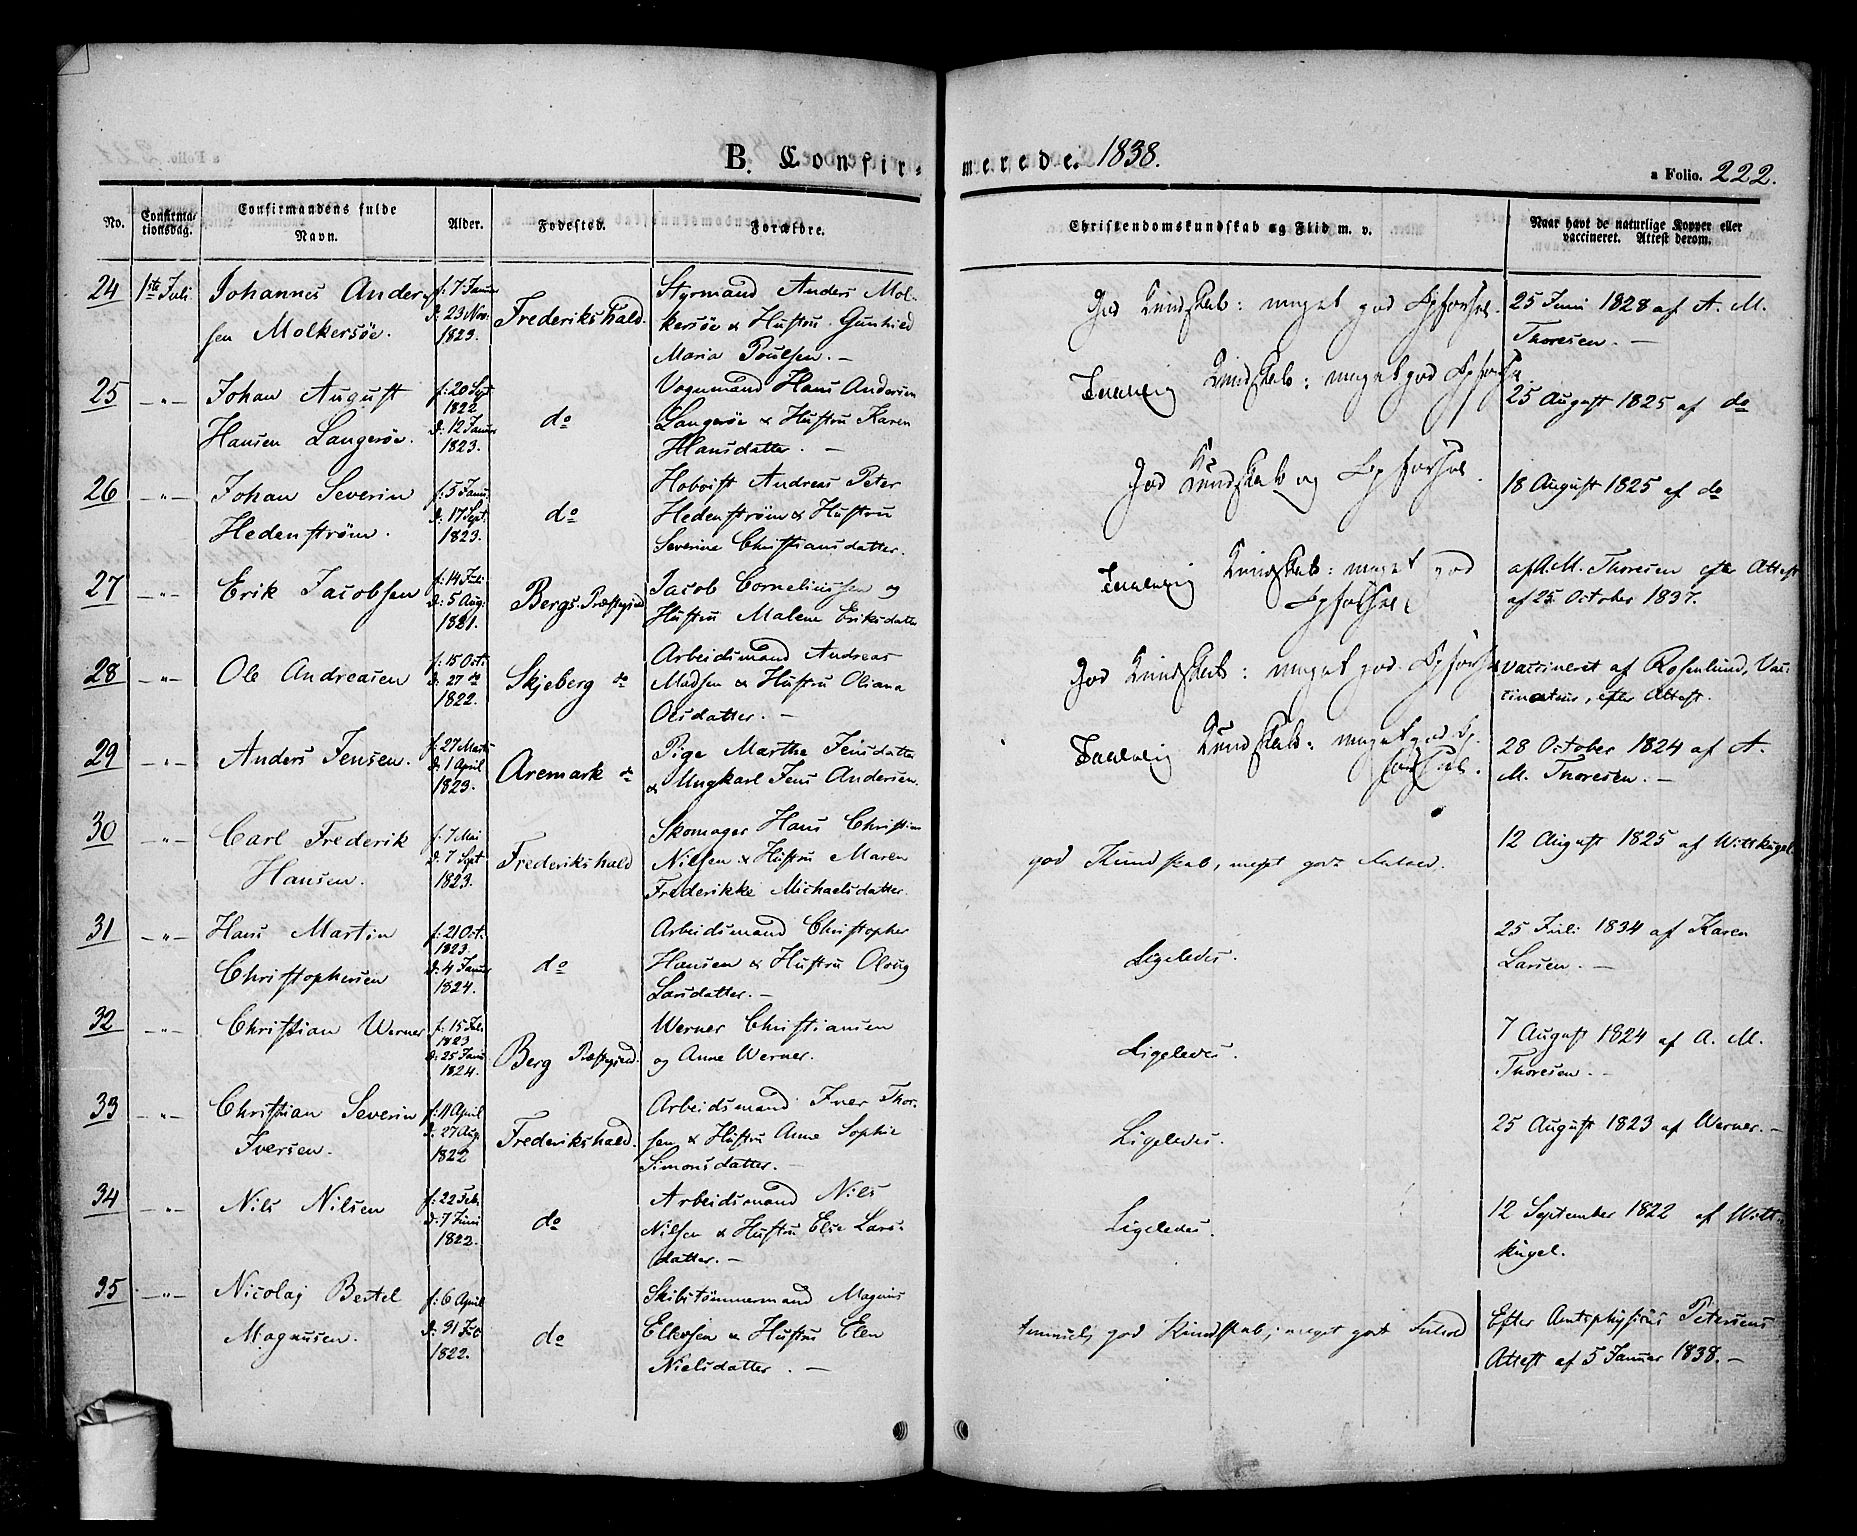 B. Confir-
merede. 1838.
a Folio. 222.
No.
Confirma-
tionsdag.
Confirmandens fulde
Navn.
Alder.
Fødested.
Forældre.
Christendomskundskab og Flid m. v.
Naar havt de naturlige Kopper eller
vaccineret. Attest derom.
24 1ste Juli Johannes Ander-
sen Molkersøe.
f: 7 Januar
d: 23 Nov:
1823.
Frederikshald.
Styrmand Anders Mol-
kersøe & Hustru Gunhild
Maria Poulsen. —
God Kundskab: meget god Opførsel.
25 Juni 1828 af A. M.
Thoresen. —
25 —"— Johan August
Hansen Langerøe.
f: 20 Sept
1822
d: 12 Januar
1823.
do
Vognmand Hans Andersen
Langerøe & Hustru Karen
Hansdatter. —
Kundskab: meget god
25 August 1825 af do
26 —"— Johan Severin
Hedenstrøm.
f: 5 Janu.
d: 17 Sept.
1823.
do
Andreas Peter
Hedenstrøm & Hustru
Severine Christiansdatter.
God Kundskab og Opførsel.
18 August 1825 af do
27 —"— Erik Jacobsen
f: 14 Juli
d: 5 Aug:
1821.
Bergs Præstegjeld
Jacob Corneliussen og
Hustru Malene Eriksdatter
Kundskab: meget god
Opførsel
af A. M. Thoresen efter Attest
af 25 October 1837.
28 —"— Ole Andreasen
f: 15 Oct:
d: 27 do
1822.
Skjeberg do
Arbeidsmand Andreas
Madsen & Hustru Oliana
Olsdatter. —
God Kundskab: meget god Opførsel
vaccineret af Rosenlund, Vac-
cinateur, efter Attest.
29 —"— Anders Jensen.
f: 27 Marts
d: 1 April
1823.
Aremark do
Pige Marthe Jensdatter
& Ungkarl Jens Andersen.
Kundskab: meget god Op-
førsel.
28 October 1824 af A.
M. Thoresen. —
30 —"— Carl Frederik
Hansen.
f: 7 Mai
d: 7 Sept
1823.
Frederikshald
Skomager Hans Christian
Nilsen & Hustru Maren
Frederikke Michaelsdatter.
god Kundskab, meget godt Forhold.
12 August 1825 af Wittkugel.
31 —"— Hans Martin
Christophersen
f: 21 Oct.
1823.
d: 4 Januar
1824.
do
Arbeidsmand Christopher
Hansen & Hustru Oloug
Larsdatter. —
Ligeledes.
25 Juli 1834 af Karen
Larsen. —
32 —"— Christian Werner
f: 15 Juli
1823
d: 25 Janu
1824.
Berg Præstegjeld.
Werner Christiansen
og Anne Werner.
Ligeledes.
7 August 1824 af A. M.
Thoresen. —
33 —"— Christian Severin
Iversen.
f: 11 April
d: 27 Aug.
1822
Frederikshald.
Arbeidsmand Iver Thor-
sen & Hustru Anne Sophie
Simonsdatter. —
Ligeledes.
25 August 1823 af Werner. —
34 —"— Nils Nilsen
f: 22 Feb.
d: 7 Juni
1822.
do
Arbeidsmand Nils
Nilsen & Hustru Else Lars-
datter. —
Ligeledes.
12 September 1822 af Witt-
kugel.
35 —"— Nicolaj Bertel
Magnusen.
f: 6 April
d: 31
1822.
do
Skibstømmermand Magnus
& Hustru Elen
Nielsdatter. —
temmelig god Kundskab, meget godt Forhold
Efter Amtsphysicus Petersens
Attest af 5 Januar 1838. —